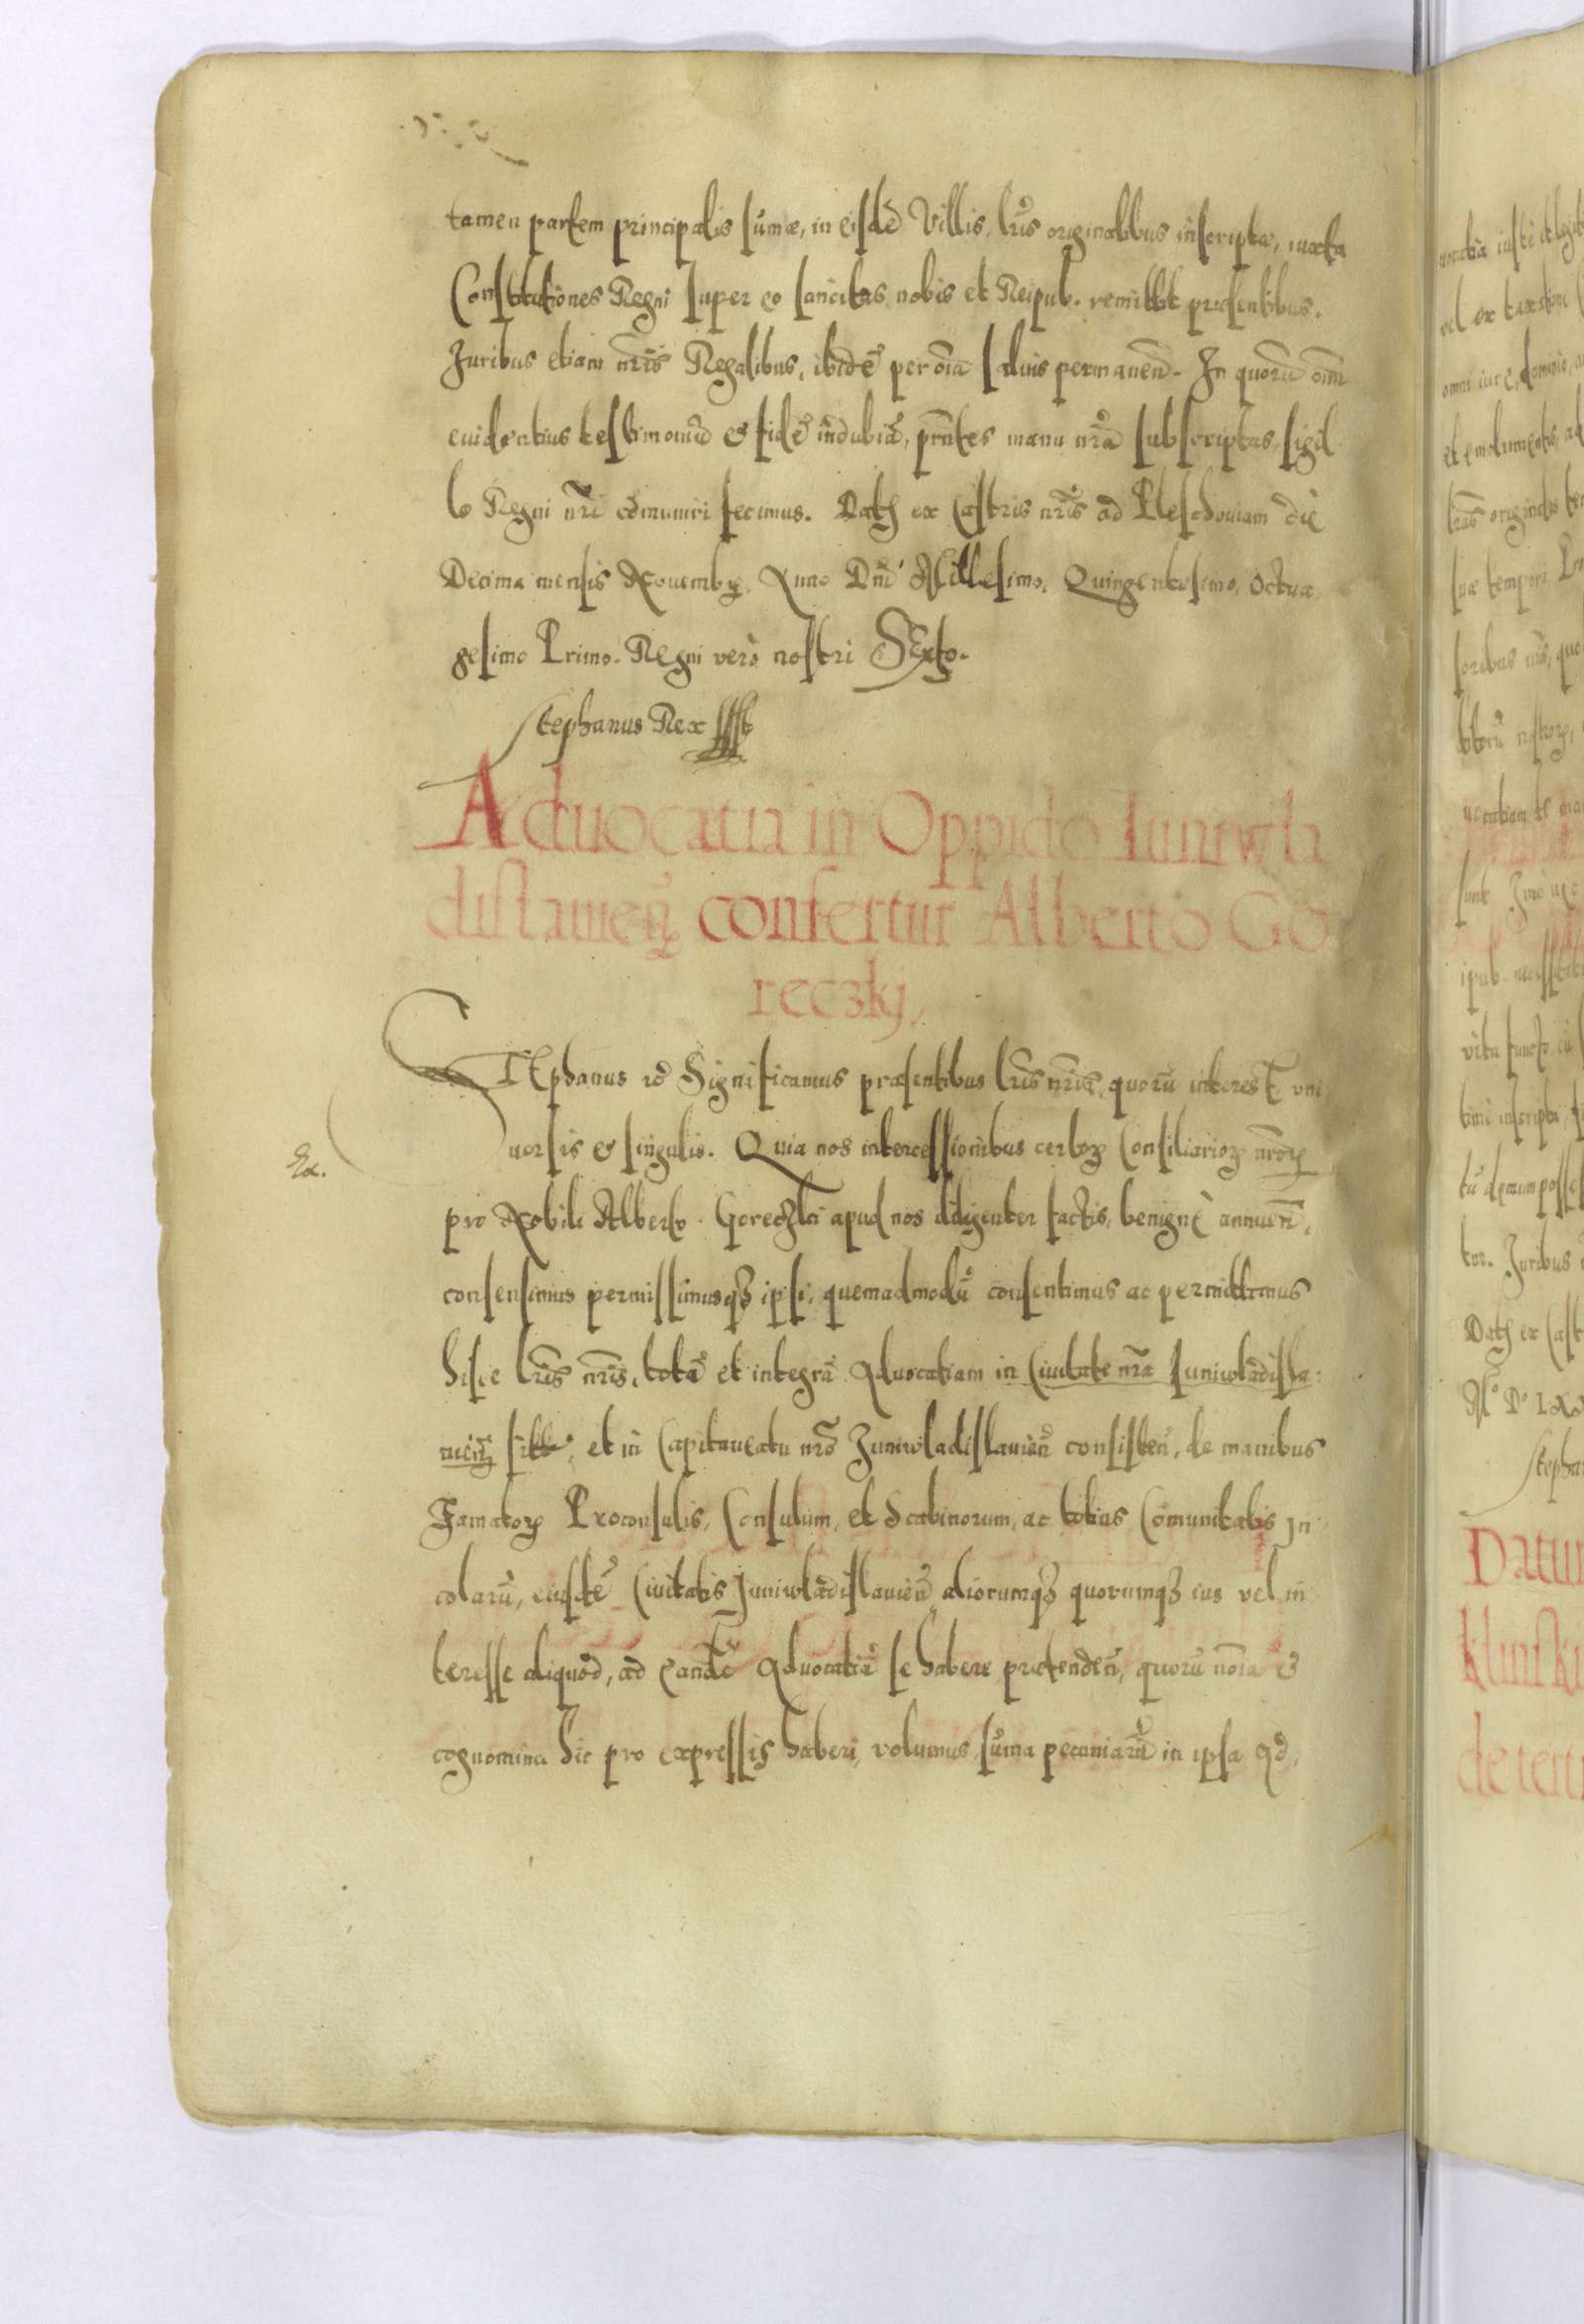 tamen partem principalis sūmæ, in eisdē Villis, lr̃is originalibus inscriptæ, iuxta
Constitutiones Regni super eo sancitas nobis et Reipub. remittit præsentibus.
Iuribus etiam nr̃is Regalibus, ibidē per oĩa saluis permanen̄. In quorū om̄
euidentius testimoniū & fidē indubiā, pr̃ntes manu nr̃a subscriptas, sigil
lo Regni nr̃i cōmuniri fecimus. Datꝭ ex Castris nr̃is ad Pleschouiam diè
Decima mensis Nouembrꝭ. Anno Dn̄i Millesimo, Quingentesimo, Octua
gesimo Primo. Regni verò nostri Sexto.
Stephanus Rex sst
Aduocatia in Oppido Iuniwla
dislauien̄ confertur Alberto Go
reczkj,
STEphanus ꝛc̄ Significamus præsentibus lr̃is nr̃is, quorū interest vni
uersis & singulis. Quia nos intercessionibus certoꝝ Consiliarioꝝ nr̃oꝝ
pro Nobili Alberto Goreczki apud nos diligenter factis, benignè annuen̄,
consensimus permissimusqꝫ ipsi, quemadmodū consentimus ac permittimus
hisce lr̃is nr̃is, totā et integrā Aduocatiam in Ciuitate nr̃a Iuniwladisla:
uien̄ , et in Capitaneatu nr̃o Iuniwladislauien̄ consisten̄, de manibus
Famatoꝝ Proconsulis, Consulum, et Scabinorum, ac totius Cōmunitatis In
colarū, eiusdē Ciuitatis Iuniwladislauien̄ aliorumqꝫ quorumqꝫ ius vel in
teresse aliquod, ad eandē Aduocatiā se habere prætenden̄, quorū noĩa &
cognomina hic pro expressis haberi volumus, sūma pecuniarū in ipsa Ad,